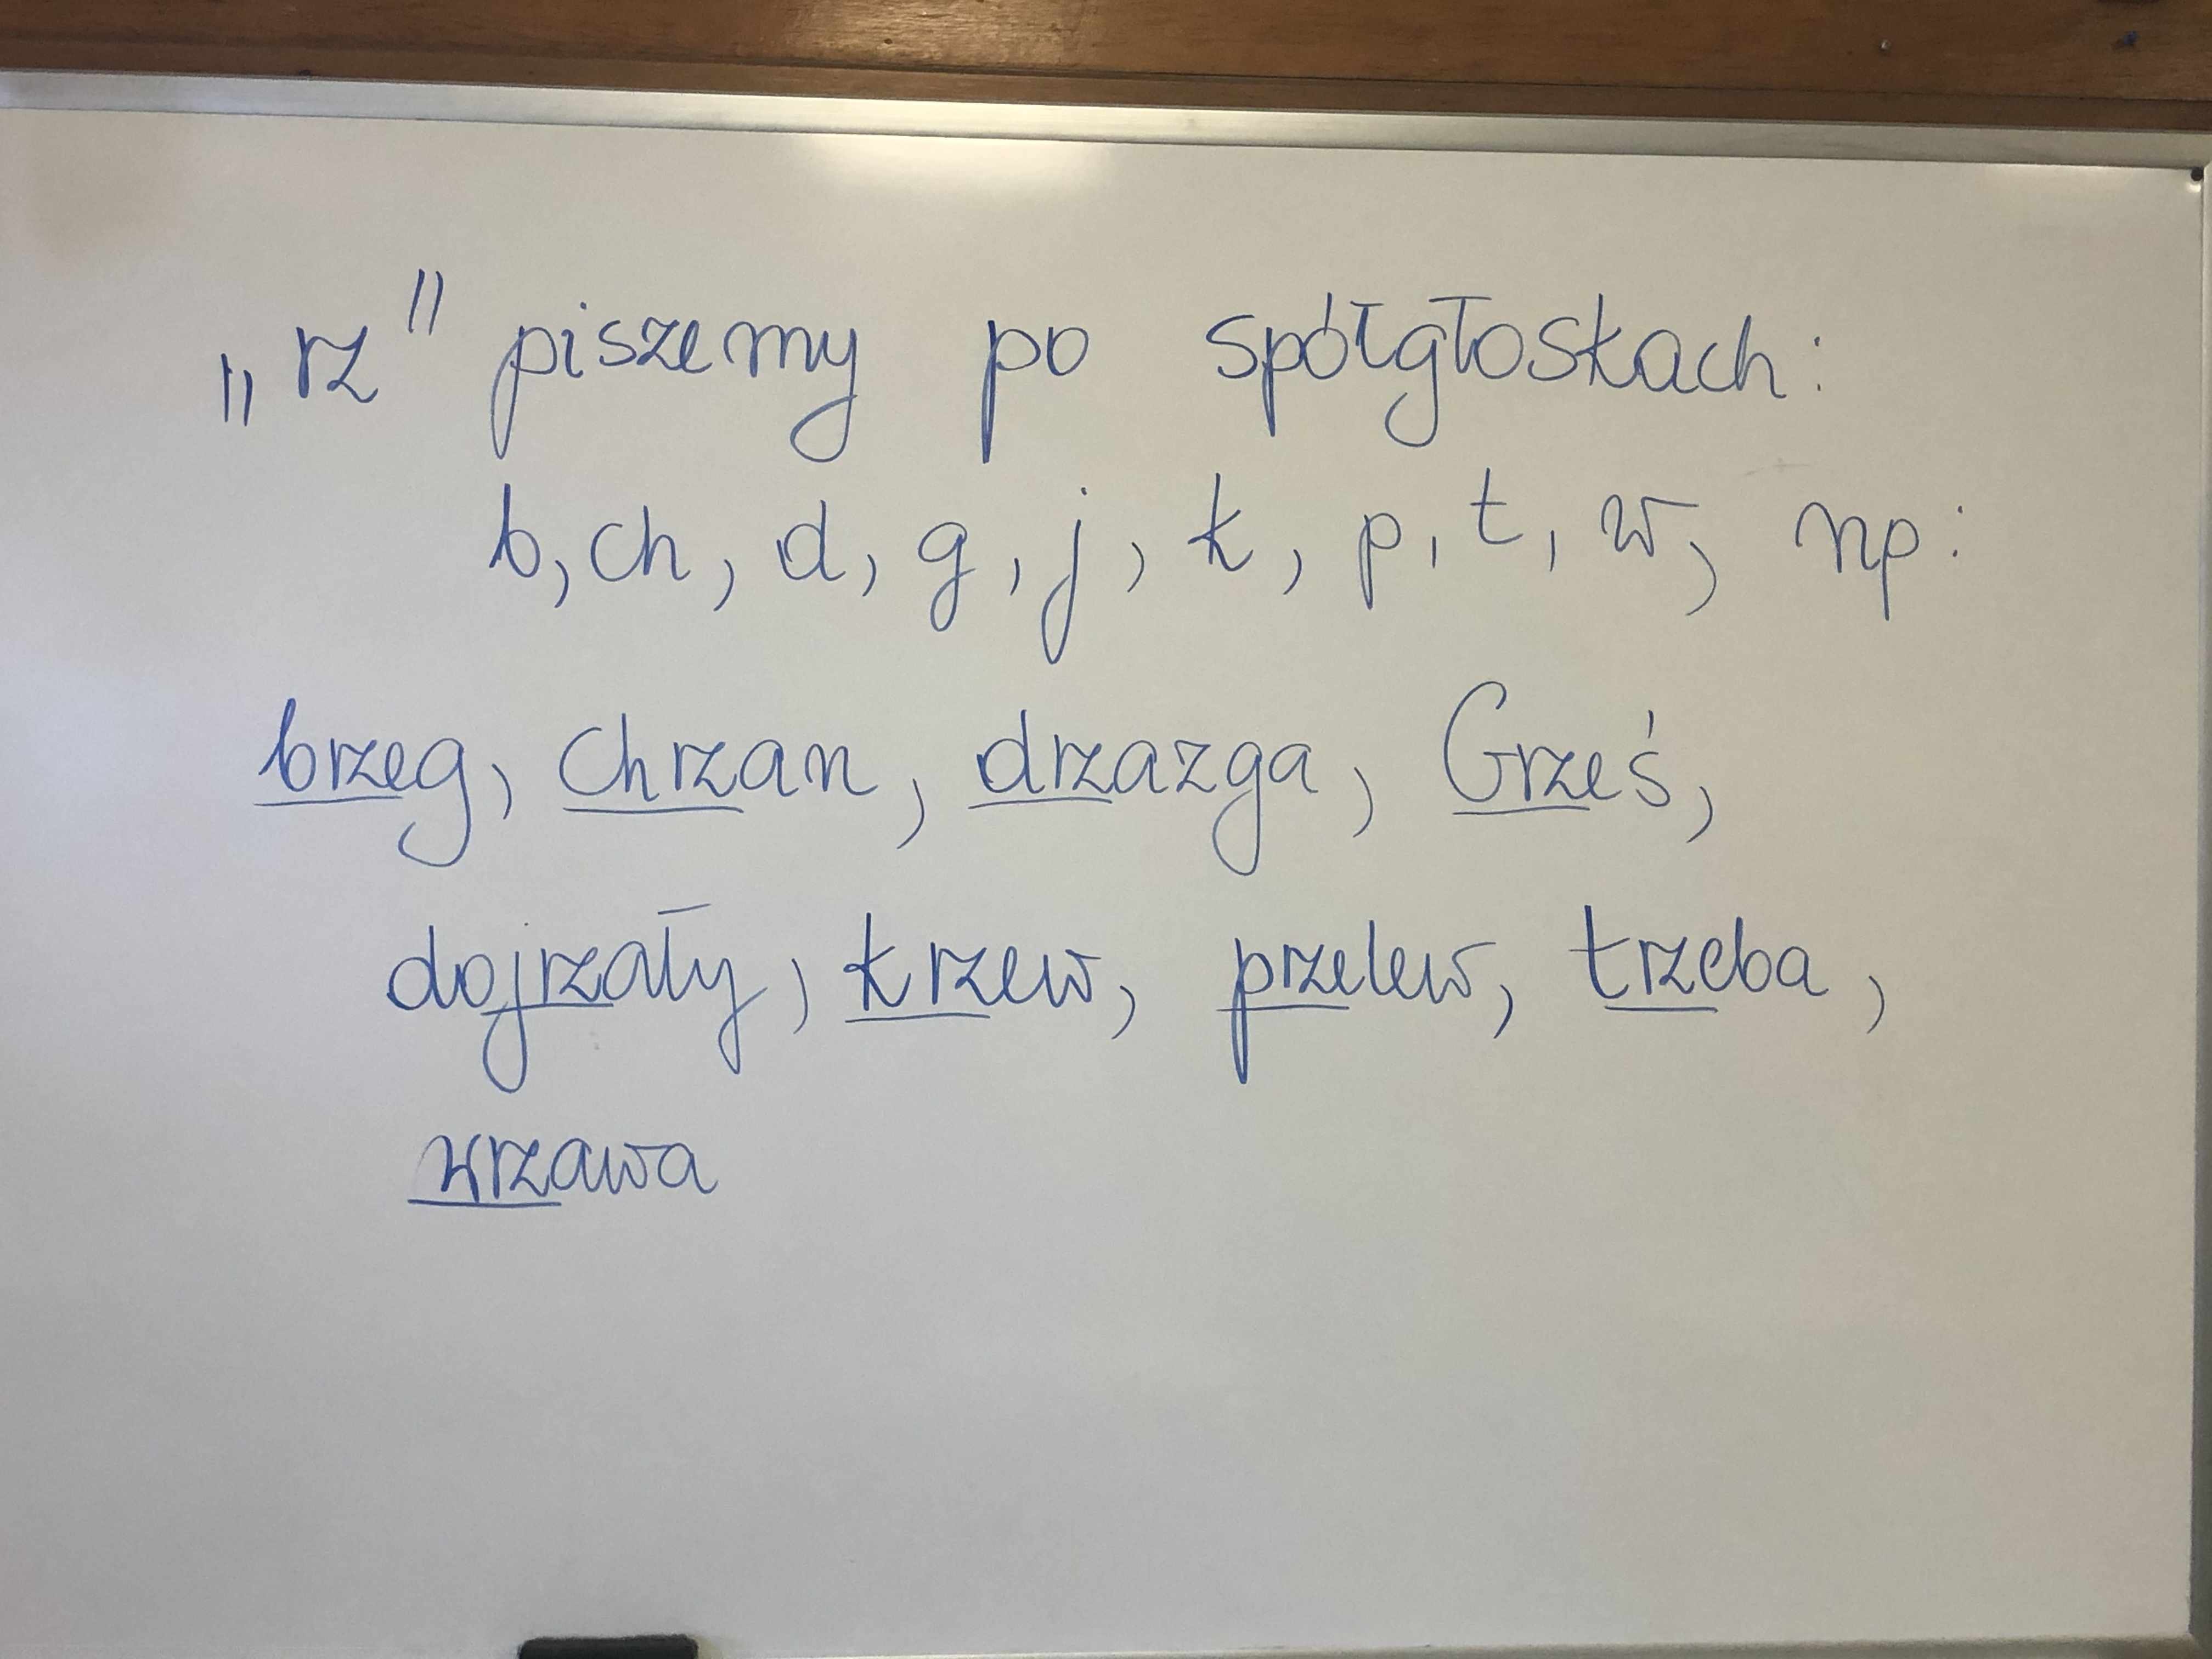 „rz" piszemy po spółgłoskach:
b, ch, d, g, j, k, p, t, w, np:
brzeg, chrzan, drzazga, Grześ,
dojrzały, krzew, przelew, trzeba,
wrzawa